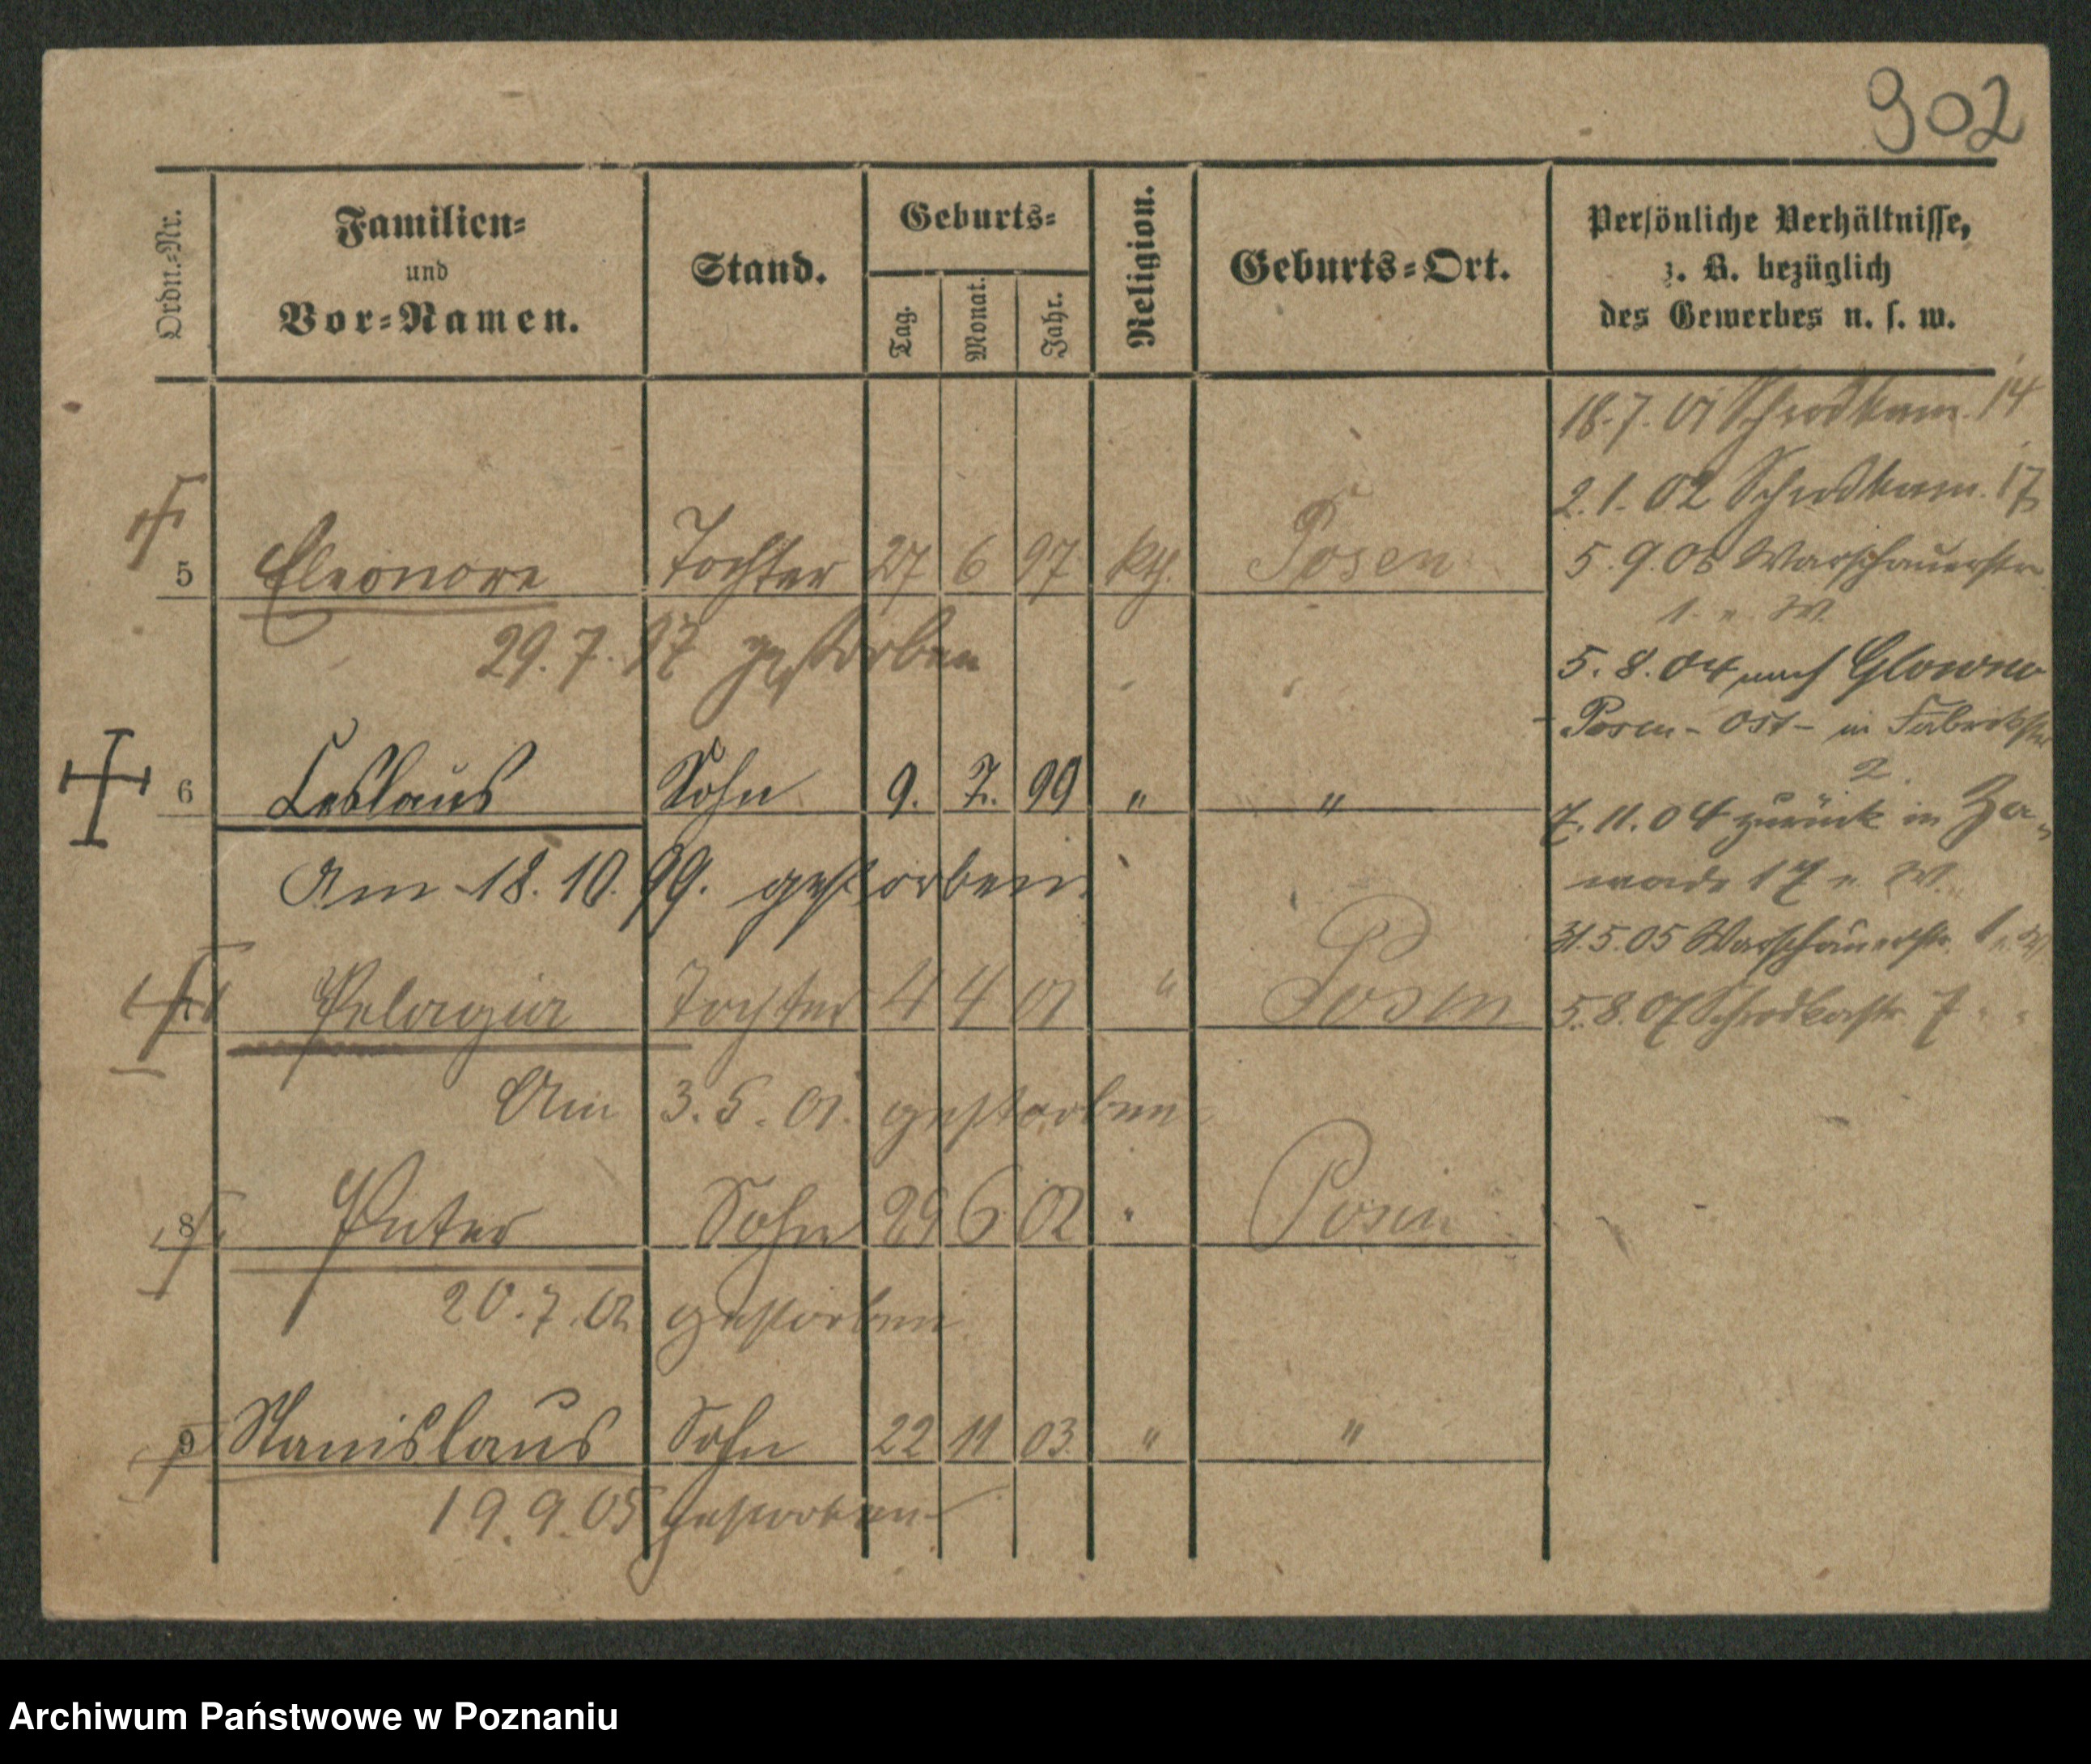 902
Ordn.-Nr.
Familien-
und
Vor-Namen.
Stand.
Geburts-
Tag.
Monat.
Jahr.
Religion.
Geburts-Ort.
Persönliche Verhältnisse,
z. B. bezüglich
des Gewerbes u. s. w.
5 Eleonore Tochter 27 6 97 kth. Posen
29.7.97 gestorben
6 Ceslaus Sohn 9. 7. 99 " "
Am 18. 10. 99. gestorben.
Pelagia Tochter 4 4 01 " Posen
Am 3. 5. 01. gestorben
8 Peter Sohn 29 6 02 " Posen
20.7.02 gestorben
9 Stanislaus Sohn 22 11 03 " "
19.9.05 gestorben
18.7.01 14
2.1.02 17
5.9.03 Warschauerstr
1
5.8.04 nach Glowno
Posen-Ost- in Fabrikstr
2
7.11.04 zurück in Za-
wade 17
31.5.05 Warschauerstr. 1
5.8.07 Schrodkastr. 7
Archiwum Państwowe w Poznaniu